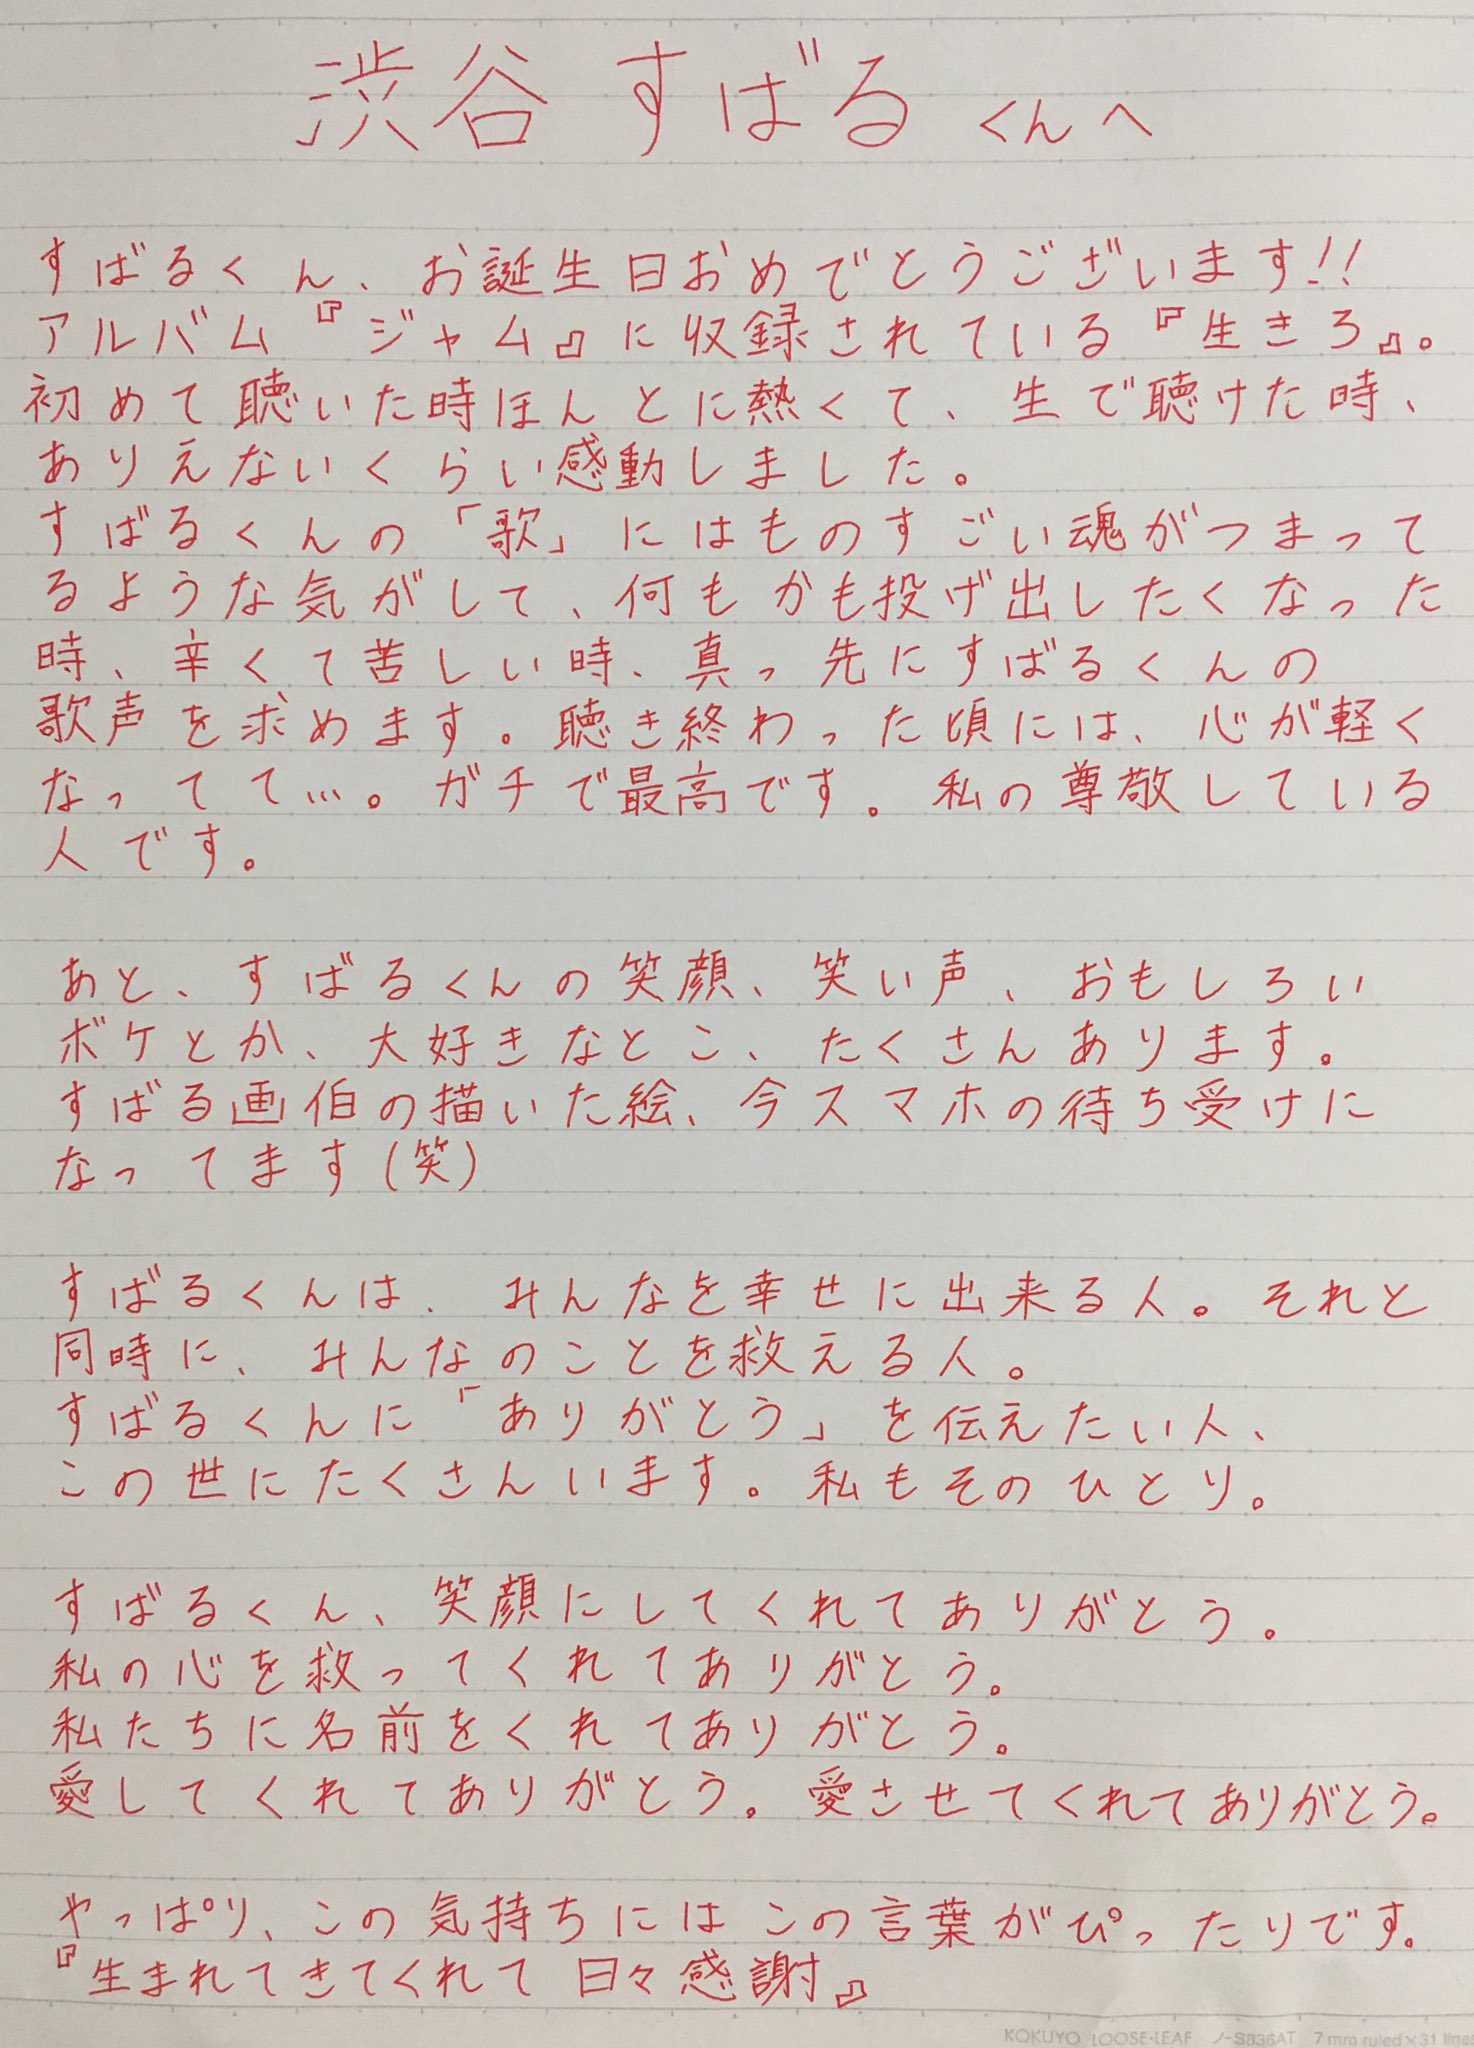 渋谷すばるくんへ
すばるくん、お誕生日おめでとうございます!!
アルバム『ジャム』に収録されている『生きろ』。
初めて聴いた時ほんとに熱くて、生で聴けた時、
ありえないくらい感動しました。
すばるくんの「歌」にはものすごい魂がつまって
るような気がして、何もかも投げ出したくなった
時、辛くて苦しい時、真っ先にすばるくんの
歌声を求めます。聴き終わった頃には、心が軽く
なってて…。ガチで最高です。私の尊敬している
人です。
あと、すばるくんの笑顔、笑い声、おもしろい
ボケとか、大好きなとこ、たくさんあります。
すばる画伯の描いた絵、今スマホの待ち受けに
なってます(笑)
すばるくんは、みんなを幸せに出来る人。それと
同時に、みんなのことを救える人。
すばるくんに「ありがとう」を伝えたい人、
この世にたくさんいます。私もそのひとり。
すばるくん、笑顔にしてくれてありがとう。
私の心を救ってくれてありがとう。
私たちに名前をくれてありがとう。
愛してくれてありがとう。愛させてくれてありがとう。
やっぱり、この気持ちにはこの言葉がぴったりです。
『生まれてきてくれて日々感謝』
KOKUYO LOOSE-LEAF ノ-S836AT 7mm ruled×31 lines